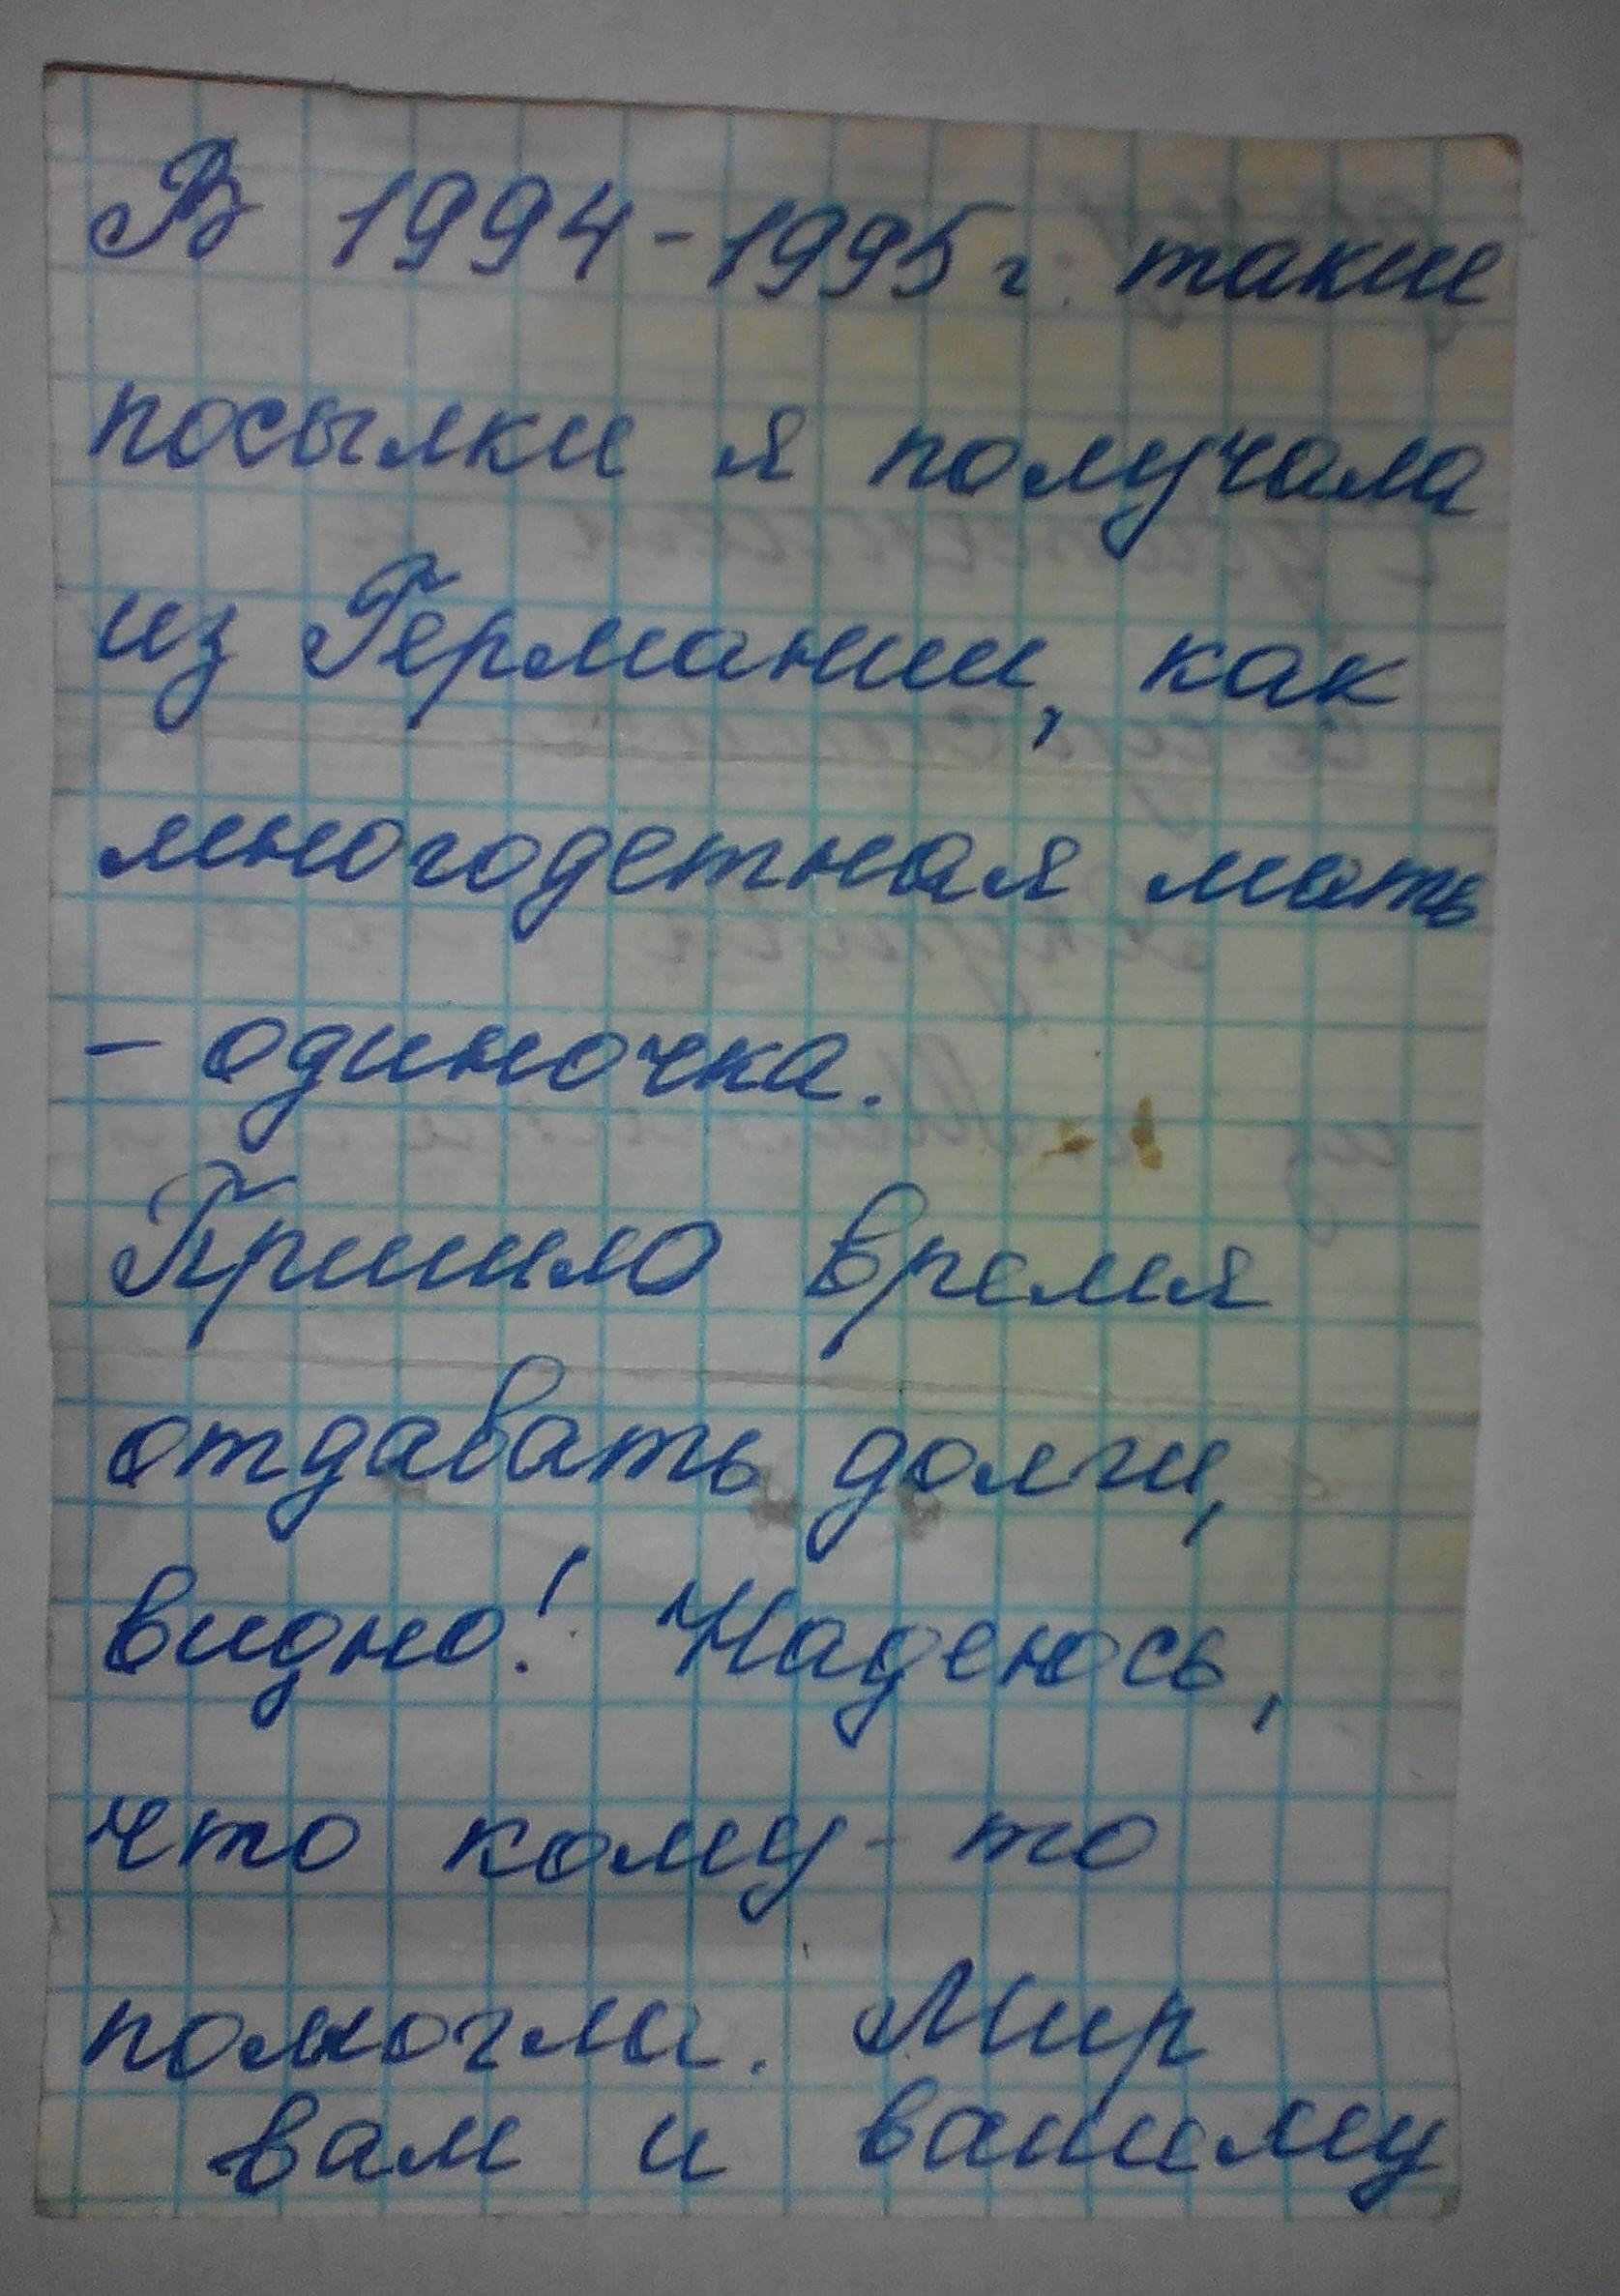 В 1994-1995г. такие
посылки я получала
из Германии, как
многодетная мать
- одиночка.
Пришло время
отдавать долги,
видно! Надеюсь,
что кому-то
помогла. Мир
вам и вашему